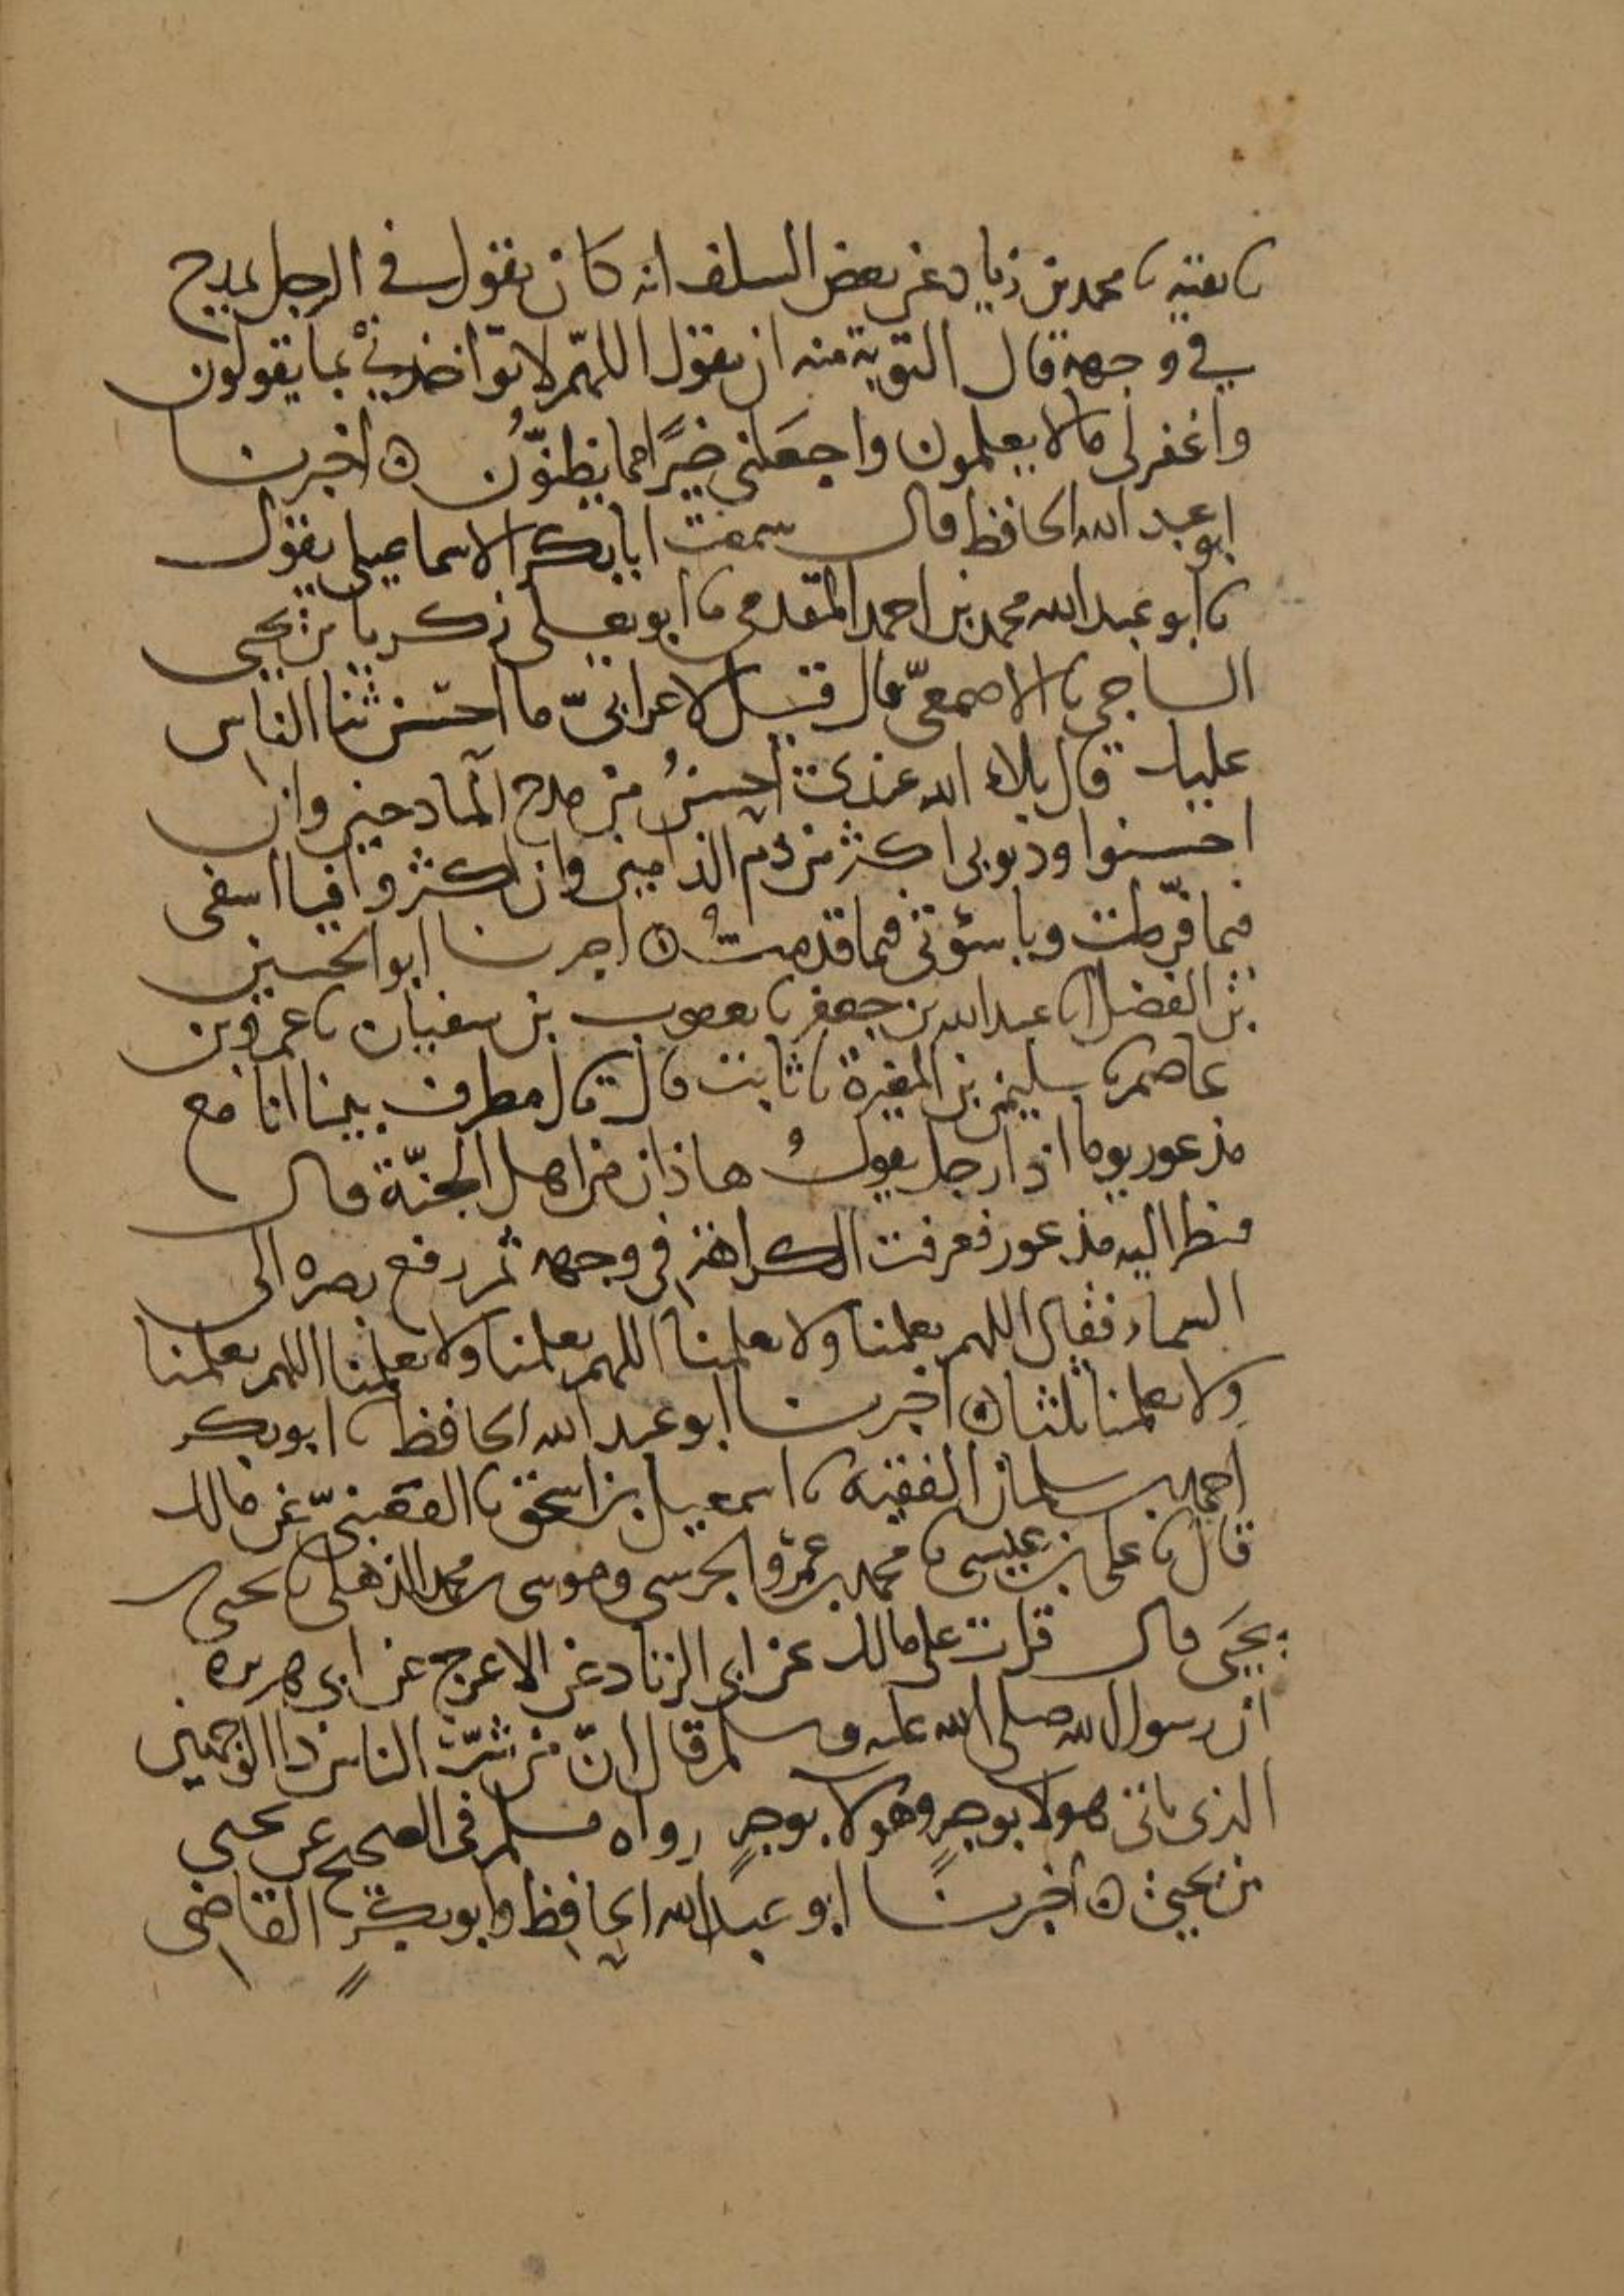 نا بقية نا محمد بن زياد عن بعض السلف انه كان يقول في الرجل يمدح
في وجهه قال التوبة منه ان يقول اللهم لا تؤاخذني بما يقولون
واغفر لي ما لا يعلمون واجعلني خيرًا مما يظنّون ۞ اخبرنا
ابو عبد الله الحافظ قال سمعت ابا بكر الاسماعيلي يقول
نا ابو عبد الله محمد بن احمد المقدمي نا ابو يعلى زكريا بن يحيى
الساجي نا الاصمعيّ قال قيل لاعرابيّ ما احسن ثنا الناس
عليك قال بلاء الله عندي احسنُ من مدح المادحين وان
احسنوا وذنوبي اكثر من ذم الذامين وان اكثروا فيا اسفى
فيما فرّطت ويا سؤتى فيما قدمتُ ۞ اخبرنا ابو الحسين
بن الفضل انا عبد الله بن جعفر نا يعقوب بن سفيان نا عمرو بن
عاصم نا سليمن بن المغيرة نا ثابت قال قال مطرف بينا انا مع
مذعور يوما اذا رجل يقولُ هاذان من اهل الجنّة قال
فنظر اليه مذعور فعرفت الكراهة في وجهه ثم رفع بصره الى
السماء فقال اللهم تعلمنا ولا يعلمنا اللهم تعلمنا ولا يعلمنا اللهم تعلمنا
ولا يعلمنا ثلثا ۞ اخبرنا ابو عبد الله الحافظ نا ابو بكر
احمد بن سلمان الفقيه نا اسمعيل بن اسحق نا القعنبيّ عن مالك
قال نا علي بن عيسى نا محمد بن عمرو الجرسي وموسى بن محمد الذهلي نا يحيى بن
يحيَى قال قرات على مالك عن ابي الزناد عن الاعرج عن ابي هريره
ان رسول الله صلى الله عليه وسلم قال انّ من شرّ الناس ذا الوجهين
الذي ياتي هولا بوجهٍ وهولا بوجهٍ رواه مسلم في الصحيح عن يحيى
بن يحيى ۞ اخبرنا ابو عبد الله الحافظ وابو بكرٍ القاضي